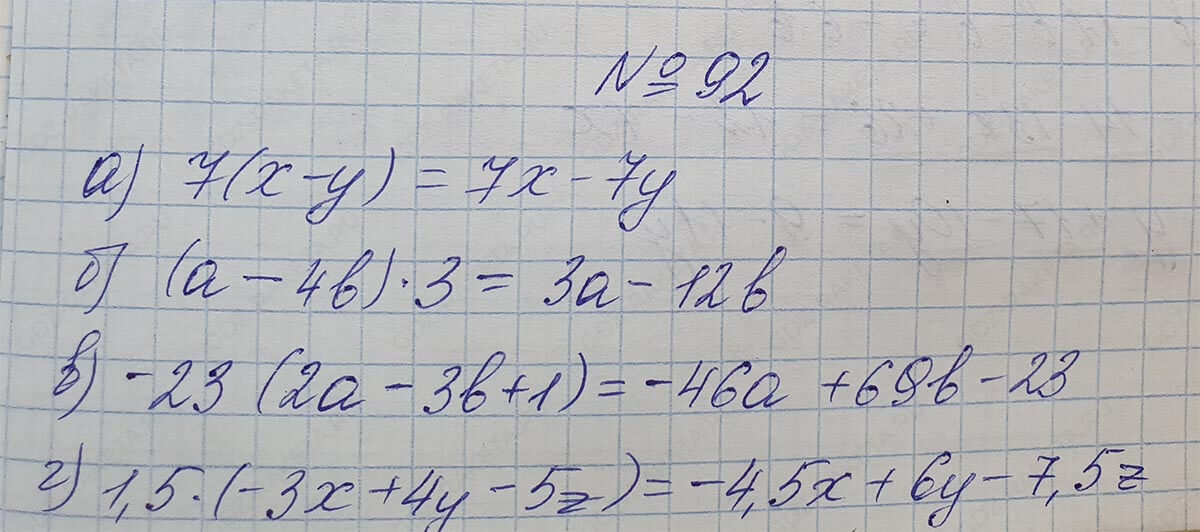 № 92
а) 7(x-y) = 7x - 7y
б) (a - 4b) · 3 = 3a - 12b
в) -23 (2a - 3b + 1) = -46a + 69b - 23
г) 1,5 · (-3x + 4y - 5z) = -4,5x + 6y - 7,5z